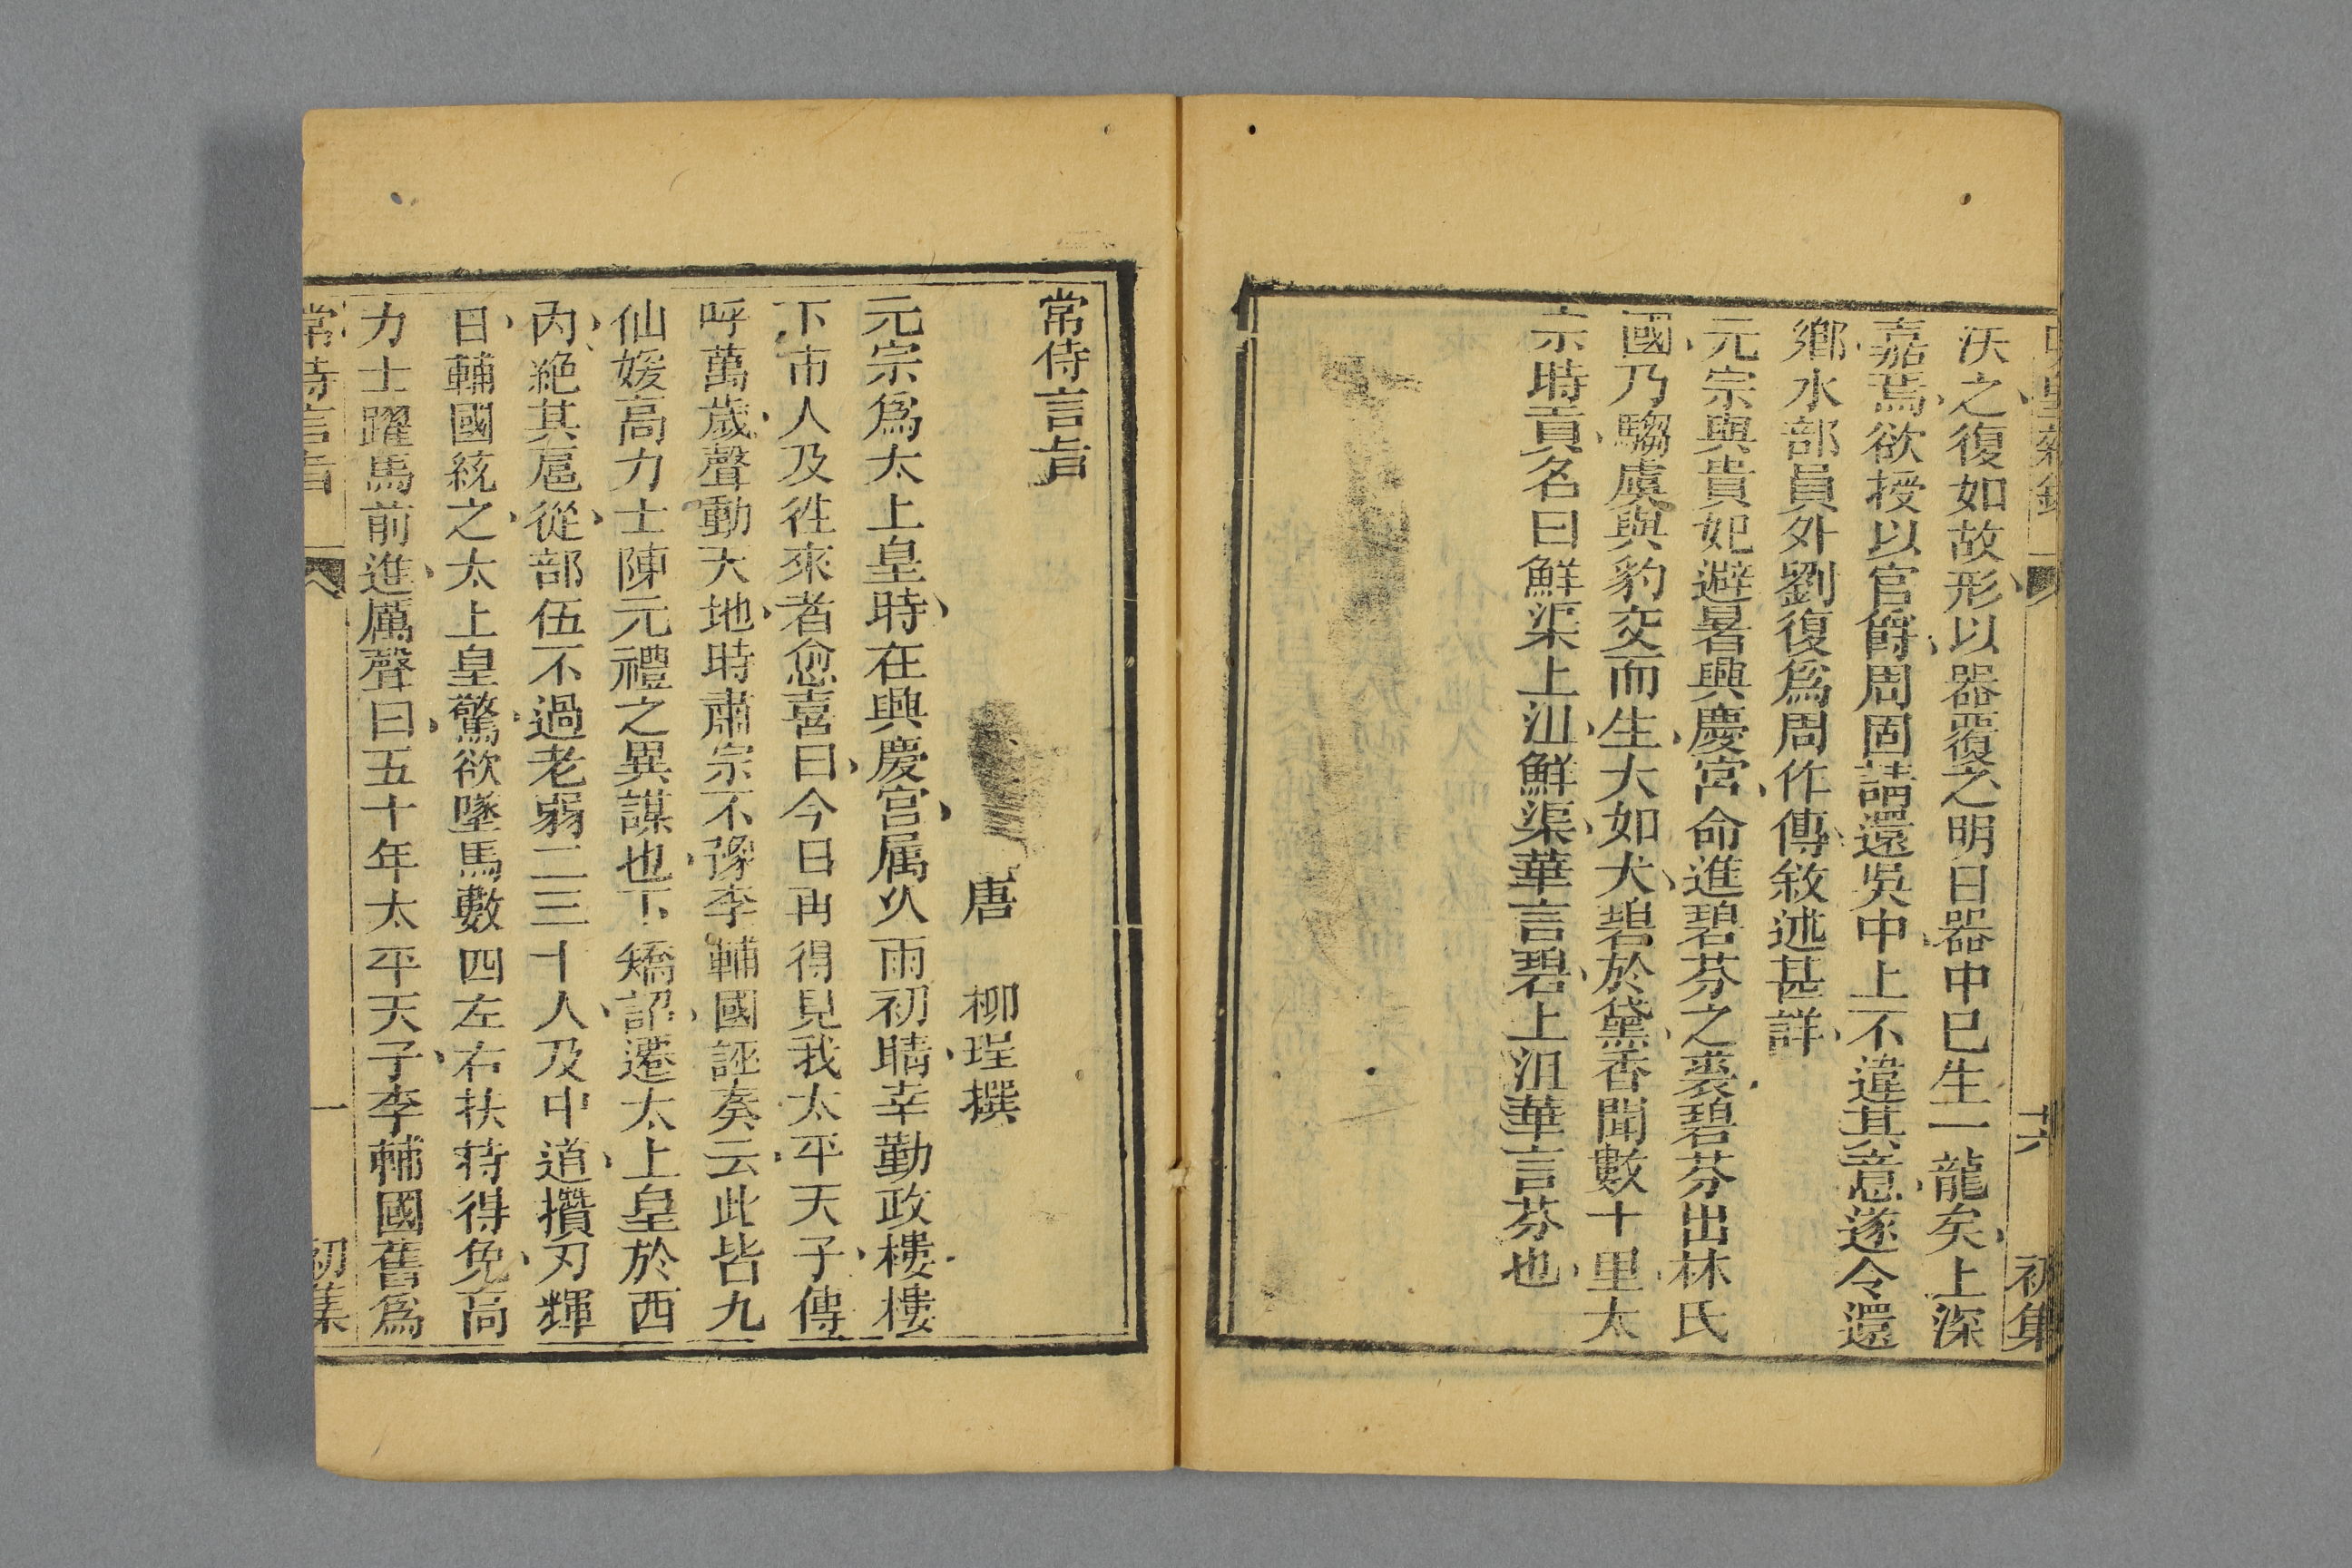 沃之復如故形以器覆之明日器中已生一龍矣上深
嘉焉欲授以官爵周固請還吳中上不違其意遂令還
鄉水部員外劉復爲周作傳敘述甚詳
元宗與貴妃避暑興慶宮命進碧芬之裘碧芬出林氏
國乃騶虞與豹交而生大如犬碧於黛香聞數十里太
宗時貢名曰鮮渠上沮鮮渠華言碧上沮華言芬也
初集
常侍言旨
唐 柳珵撰
元宗爲太上皇時在興慶宮属久雨初晴幸勤政樓樓
下市人及徃來者愈喜曰今日再得見我太平天子傳
呼萬歲聲動天地時肅宗不豫李輔國誣奏云此皆九
仙媛高力士陳元禮之異謀也下矯詔遷太上皇於西
內絕其扈從部伍不過老弱二三十人及中道攢刃輝
日輔國統之太上皇驚欲墜馬數四左右扶持得免高
力士躍馬前進厲聲曰五十年太平天子李輔國舊爲
常侍言旨 一 初集